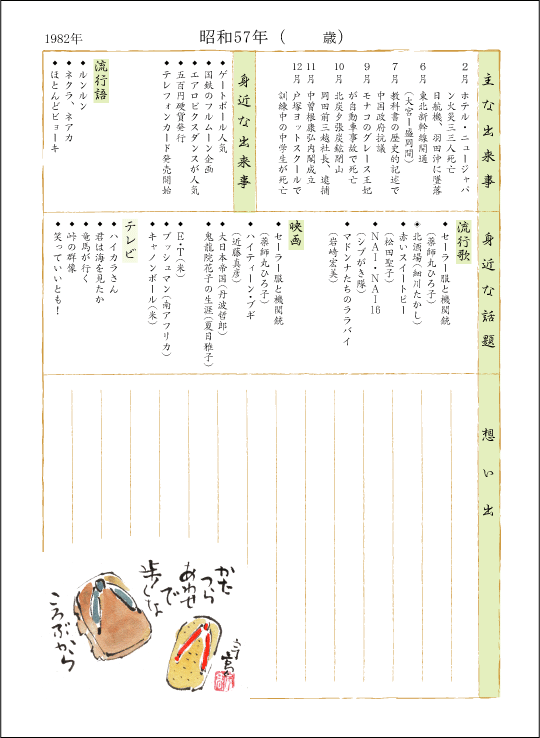 1982年
昭和57年（　　歳）
主な出来事
2月 ホテル・ニュージャパ
ン火災三三人死亡
日航機、羽田沖に墜落
6月 東北新幹線開通
（大宮ー盛岡間）
7月 教科書の歴史的記述で
中国政府抗議
9月 モナコのグレース王妃
が自動車事故で死亡
10月 北炭夕張炭鉱閉山
岡田前三越社長、逮捕
11月 中曽根康弘内閣成立
12月 戸塚ヨットスクールで
訓練中の中学生が死亡
身近な出来事
◆ゲートボール人気
◆国鉄のフルムーン企画
◆エアロビクスダンスが人気
◆五百円硬貨発行
◆テレフォンカード発売開始
流行語
◆ルンルン
◆ネクラ、ネアカ
◆ほとんどビョーキ
身近な話題
流行歌
◆セーラー服と機関銃
（薬師丸ひろ子）
◆北酒場（細川たかし）
◆赤いスイートピー
（松田聖子）
◆NAI・NAI16
（シブがき隊）
◆マドンナたちのララバイ
（岩崎宏美）
映画
◆セーラー服と機関銃
（薬師丸ひろ子）
◆ハイティーン・ブギ
（近藤真彦）
◆大日本帝国（丹波哲郎）
◆鬼龍院花子の生涯（夏目雅子）
◆E・T（米）
◆ブッシュマン（南アフリカ）
◆キャノンボール（米）
テレビ
◆ハイカラさん
◆君は海を見たか
◆竜馬が行く
◆峠の群像
◆笑っていいとも！
想い出
かた
つら
あわせ
で
歩くな
ころぶから